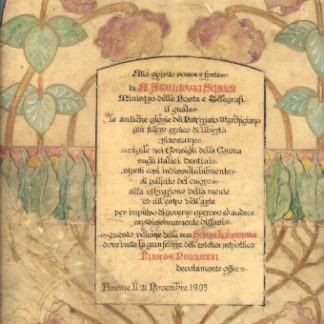 Allo spirito soave e forte
di A. Stelluti Scala
Ministro delle Poste e Telegrafi
il quale
le antiche glorie del Patriziato Marchigiano
già fulcro eroico di libertà
riassume
vigile nei Consigli della Corona
sugli italici destini
stretti così indissolubilmente
al palpito del cuore
alla vibrazione della mente
ed all'estro dell'arte
per impulso di governo operoso ed audace
questo volume della sua
dono batte la gran febbre dell'estetica patriottica
devotamente offre
Firenze li 21 Novembre 1903